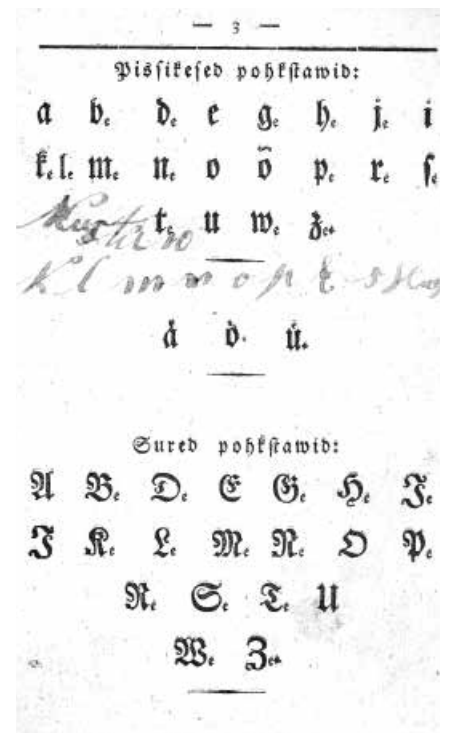 — 3 —
Pisſikeſed pohkſtawid:
a b.e d.e e g.e h.e j.e i
k.e l.e m.e n.e o õ p.e r.e ſ.e
t.e u w.e z.et
K l m n o p
å ò ů.
Sured pohkſtawid:
A B.e D.e E G.e H.e J.e
I K.e L.e M.e N.e O P.e
R.e S.e T.e U
W.e Z.et